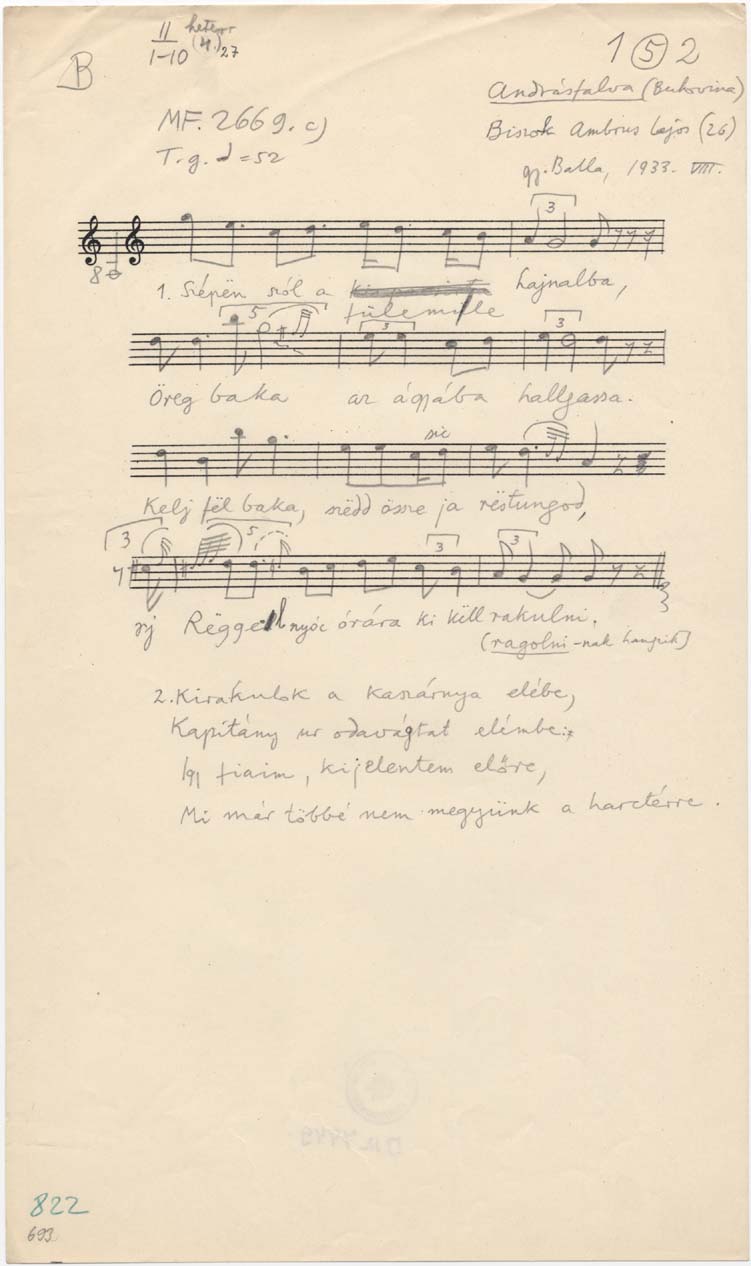 B
II
1-10
27
1 5 2
Andrásfalva (Bukovina)
MF. 2669. c)
Biszok Ambrus Lajos (26)
T. g. = 52
gy. Balla, 1933. VIII.
3
8
1. Szépën szól a hajnalba,
fülemile
5 3 3
Öreg baka az ágyába hallgassa.
sic
Kelj fël baka, szëdd össze ja rëstungod,
3 5 3 3
Rëggel nyóc órára ki këll rakulni.
(ragolni-nak hangzik)
2. Kirakulok a kaszárnya elébe,
Kapitány ur odavágtat elémbe:
Igy fiaim, kijelentem előre,
Mi már többé nem megyünk a harctérre.
822
693